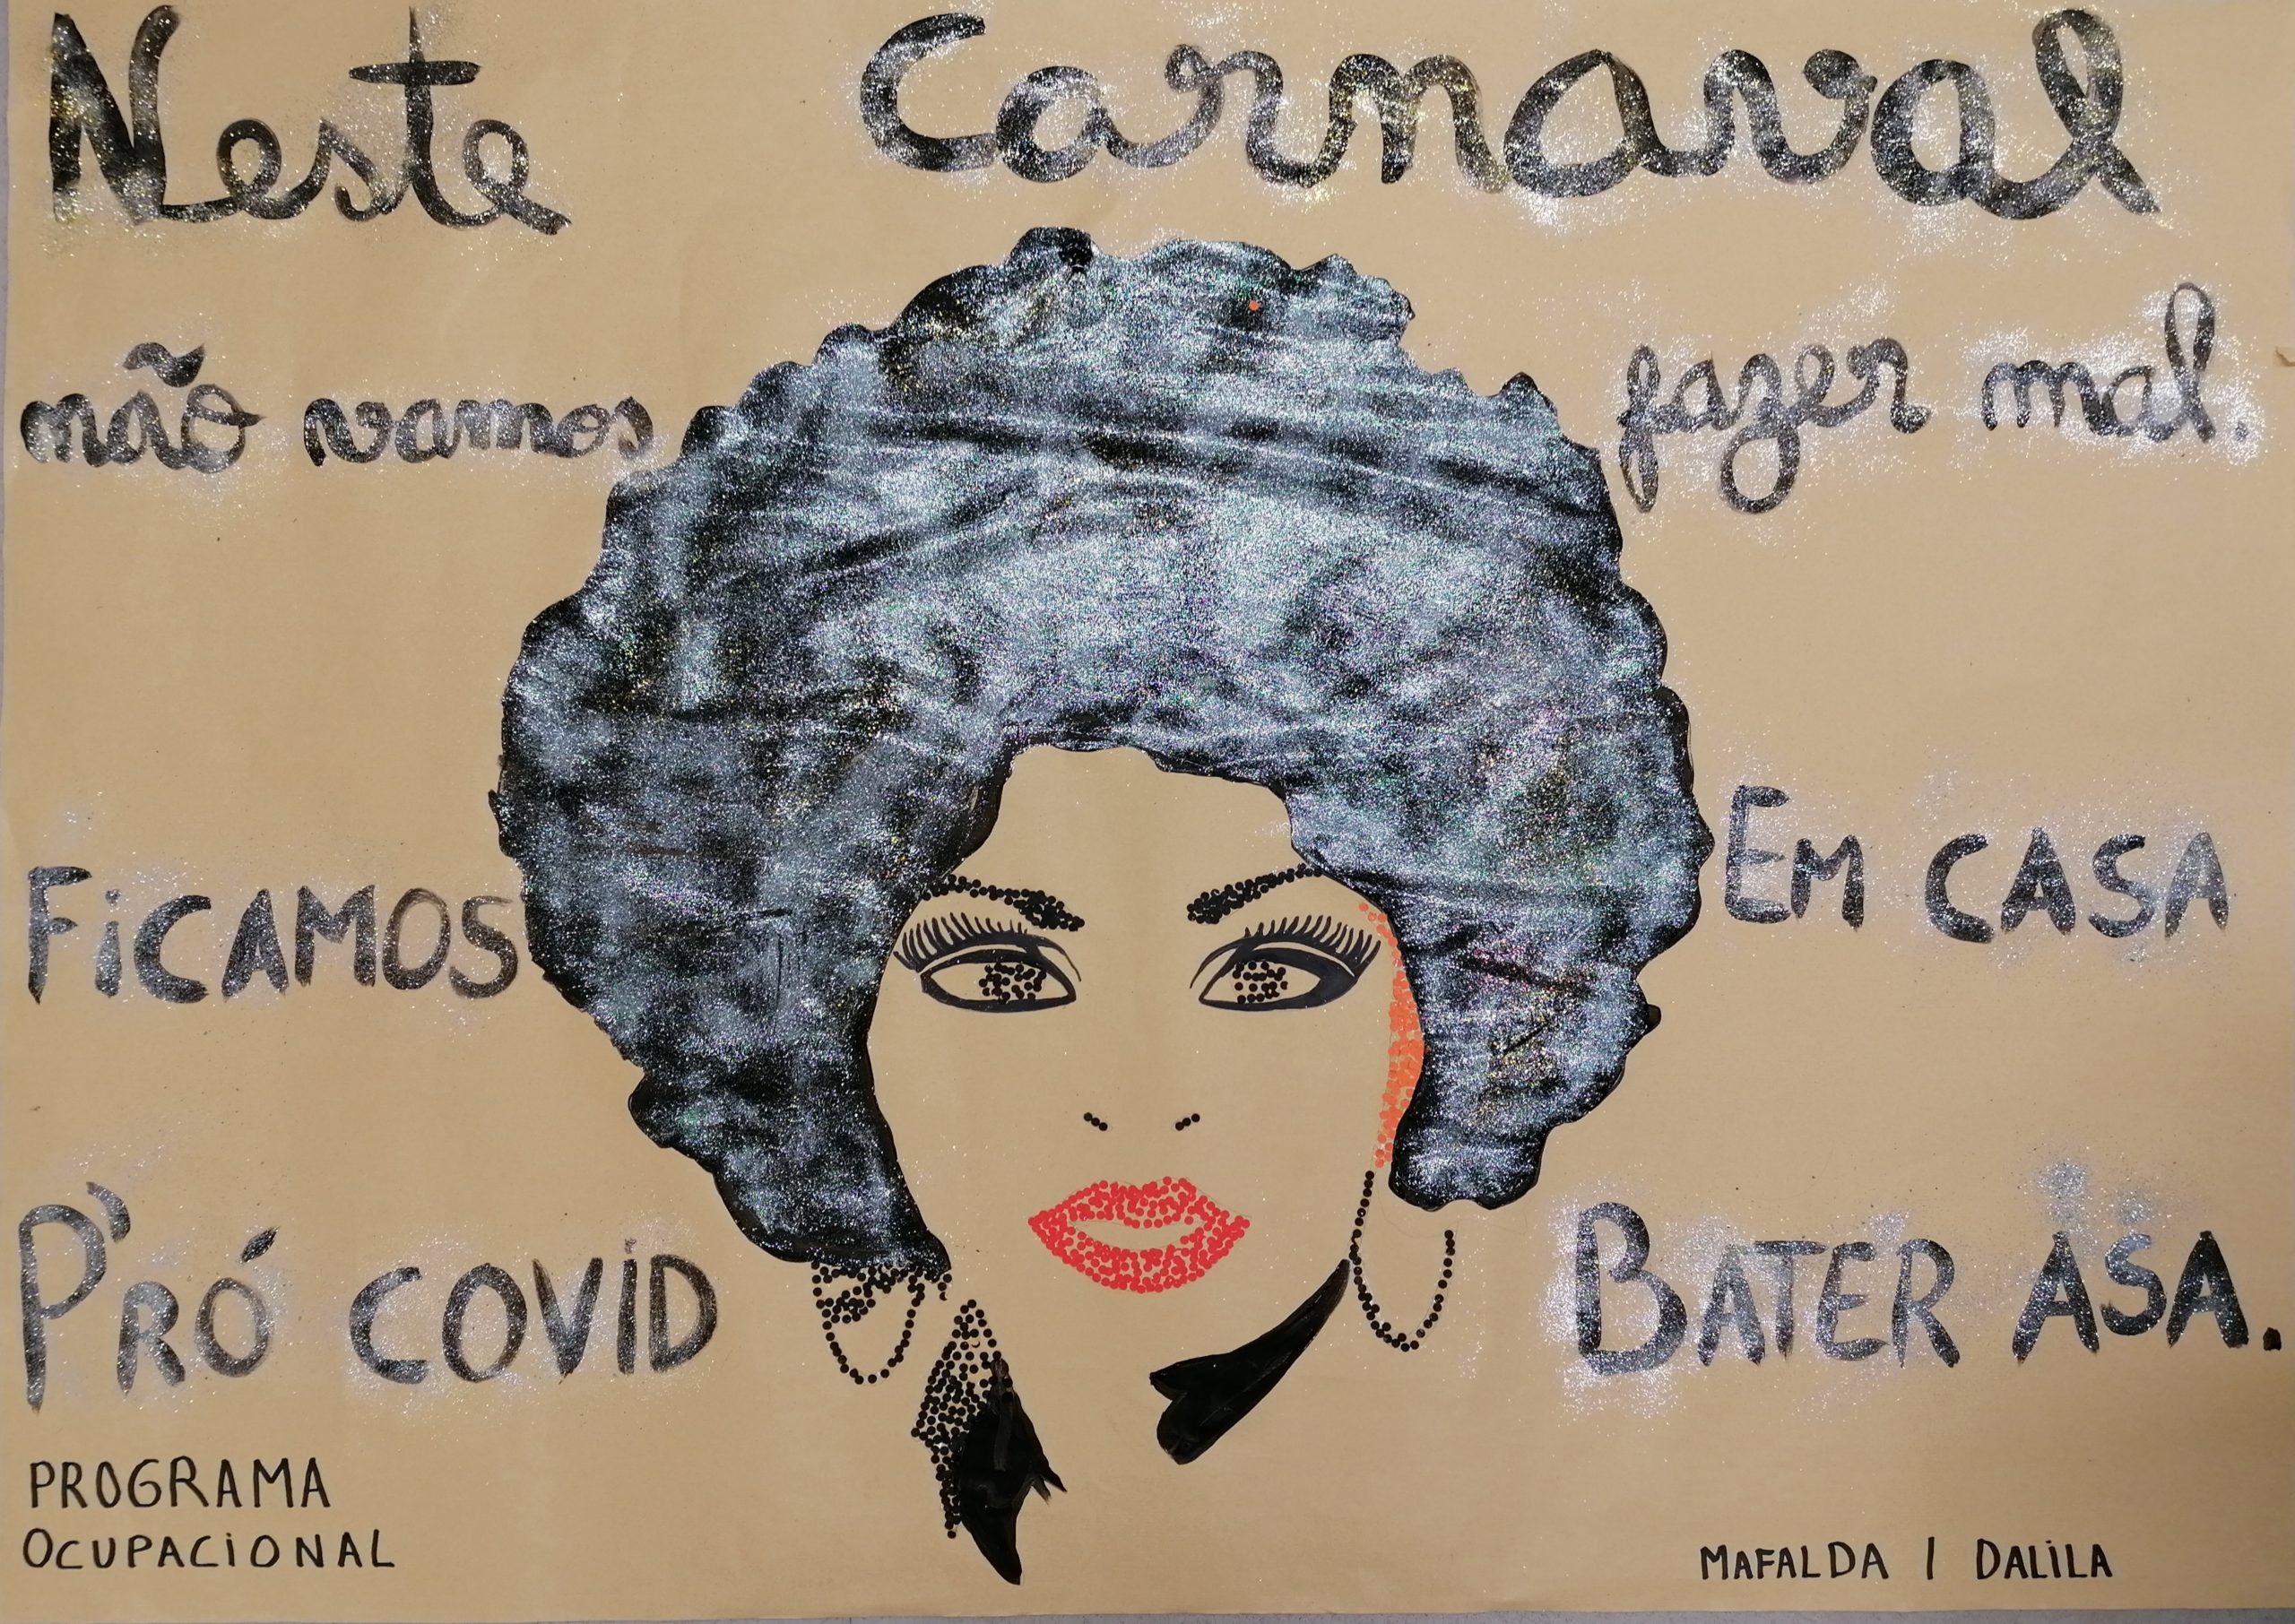 Neste Carnaval
não vamos fazer mal.
FiCAMOS EM CASA
P'RÓ COVID BATER ASA.
PROGRAMA
OCUPACIONAL
MAFALDA | DALILA